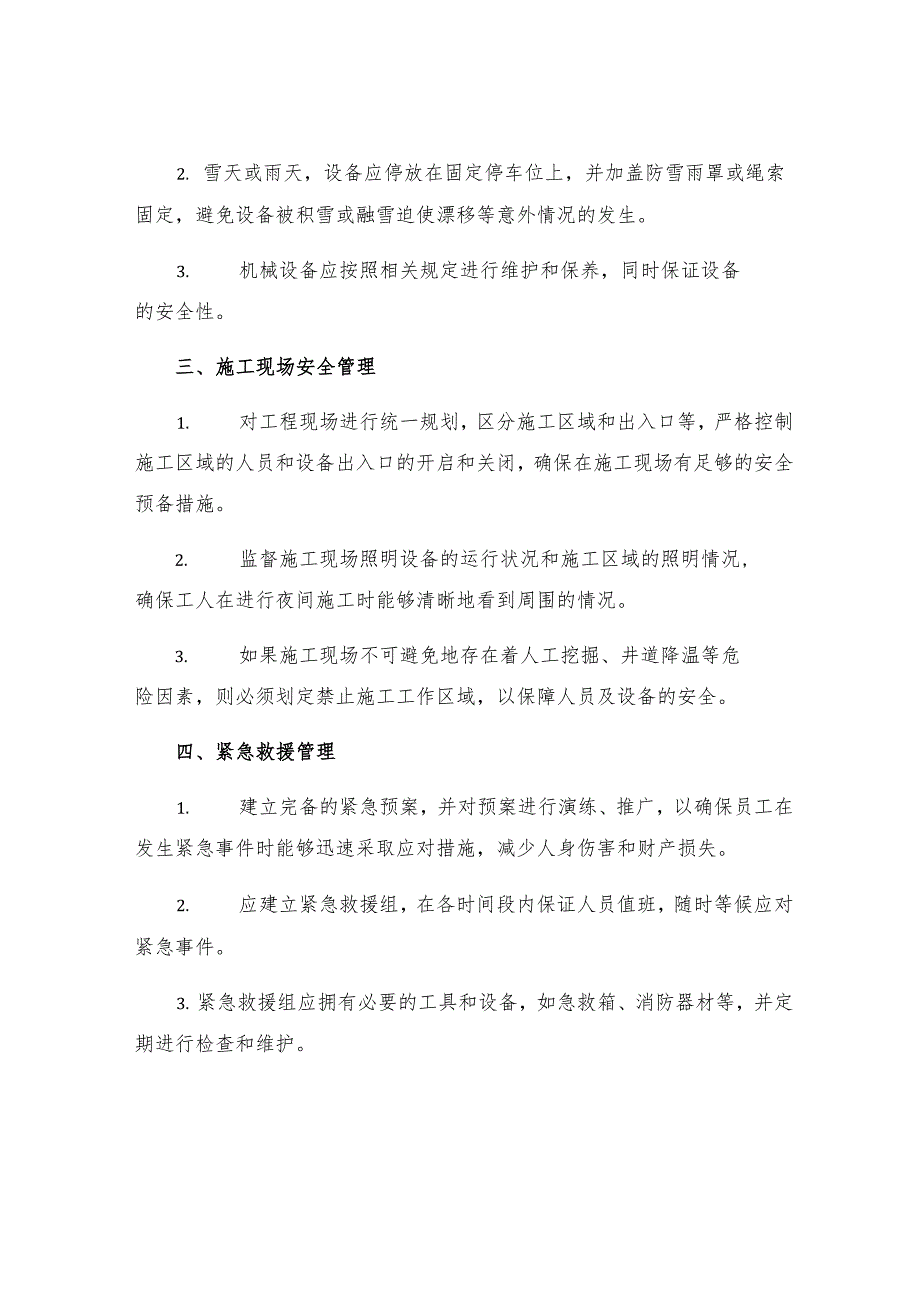 2. 雪天或雨天，设备应停放在固定停车位上，并加盖防雪雨罩或绳索
固定，避免设备被积雪或融雪迫使漂移等意外情况的发生。
3. 机械设备应按照相关规定进行维护和保养，同时保证设备
的安全性。
三、施工现场安全管理
1. 对工程现场进行统一规划，区分施工区域和出入口等，严格控制
施工区域的人员和设备出入口的开启和关闭，确保在施工现场有足够的安全
预备措施。
2. 监督施工现场照明设备的运行状况和施工区域的照明情况，
确保工人在进行夜间施工时能够清晰地看到周围的情况。
3. 如果施工现场不可避免地存在着人工挖掘、井道降温等危
险因素，则必须划定禁止施工工作区域，以保障人员及设备的安全。
四、紧急救援管理
1. 建立完备的紧急预案，并对预案进行演练、推广，以确保员工在
发生紧急事件时能够迅速采取应对措施，减少人身伤害和财产损失。
2. 应建立紧急救援组，在各时间段内保证人员值班，随时等候应对
紧急事件。
3. 紧急救援组应拥有必要的工具和设备，如急救箱、消防器材等，并定
期进行检查和维护。